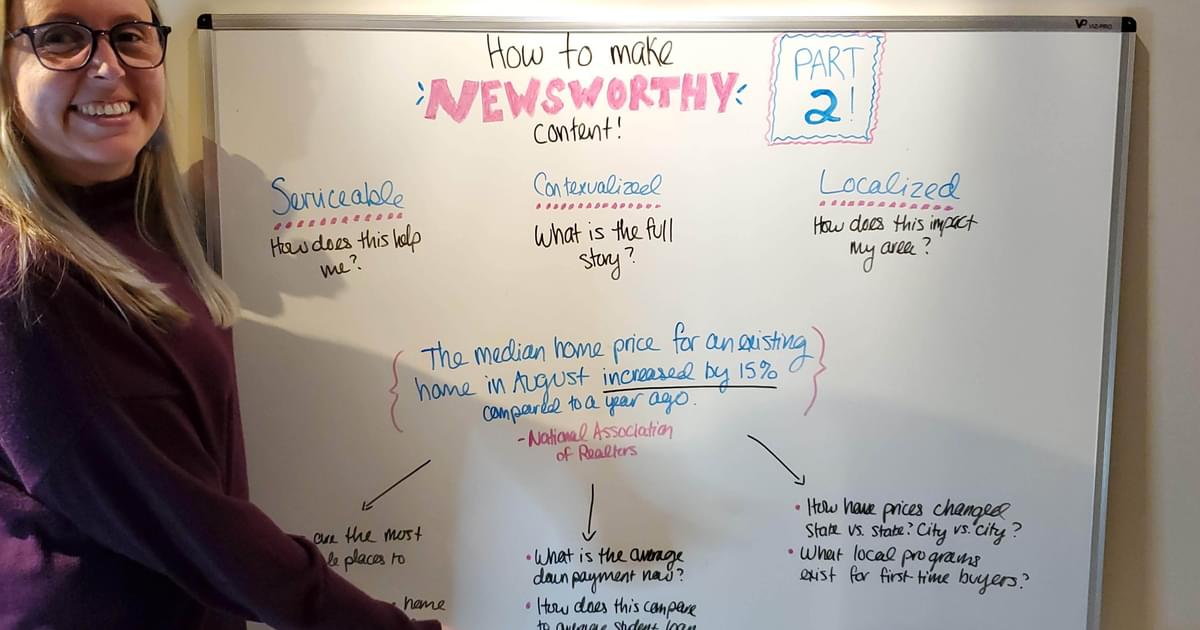 VP VIZ-PRO
How to make
NEWSWORTHY
content!
PART
2!
Serviceable
How does this help
me?
Contexualized
What is the full
story?
Localized
How does this impact
my area?
The median home price for an existing
home in August increased by 15%
compared to a year ago.
- National Association
of Realtors
are the most
places to
home
• What is the average
down payment now?
• How does this compare
to average student loan
• How have prices changed
State vs. State? City vs. City?
• What local programs
exist for first-time buyers?